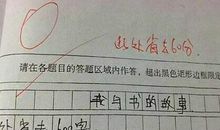 此处省去60分
请在各题目的答题区域内作答，超出黑色矩形边框限定
我与书的故事
此处省去600字